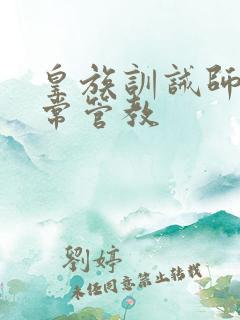 皇族訓誡師
常管教
劉婷
未任同意禁止转载